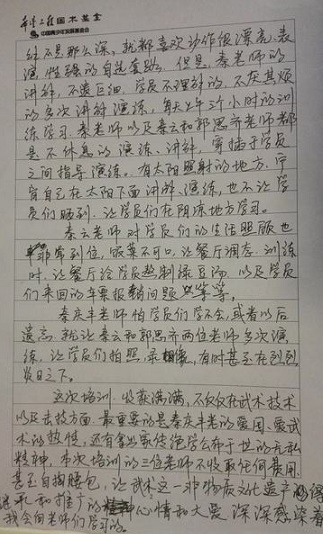 希望工程国术基金
中国青少年发展基金会
不是那么深。就都喜欢动作很漂亮、表
演性强的自选套路。但是，秦老师的
讲解，不遗巨细，学员不理解的，不厌其烦
的多次讲解演练，每天上午3个小时的训
练学习，秦老师以及秦云和郭思齐老师都
是不休息的演练、讲解，穿插于学员
之间指导演练。有太阳照射的地方，宁
肯自己在太阳下面讲解演练，也不让学
员们晒到，让学员们在阴凉地方学习。
秦云老师对学员们的生活照顾也
非常到位，饭菜不可口，让餐厅调态，训练
时，让餐厅给学员熬制绿豆汤，以及学员
们来回的车票报销问题等等。
秦庆丰老师怕学员们学不会，或者以后
遗忘，就让秦云和郭思齐两位老师多次演
练，让学员们拍照、录像，有时甚至在烈烈
炎日之下。
这次培训，收获满满，不仅仅在武术技术
以及去技方面，最重要的是秦庆丰老的爱国、爱武
术的热情，还有拿出家传绝学公布于世的无私
精神，本次培训的三位老师不收取任何费用，
甚至自掏腰包，让武术这一非物质文化遗产
继承和推广的心情和大爱 深深感染着
我会向老师们学习的。